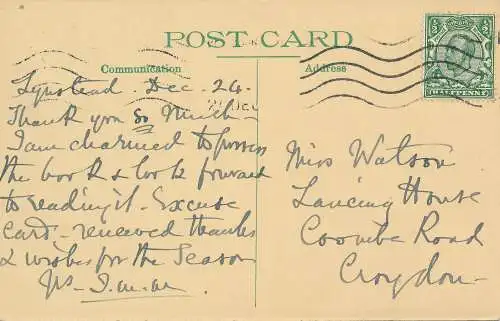 POST CARD
Communication
Address
HALFPENNY
Lynstead. Dec. 24.
Thank you so much
I am charmed to possess
the book & look forward
to reading it. Excuse
card,- renewed thanks
& wishes for the Season
Miss Watson
Lancing House
Coombe Road
Croydon